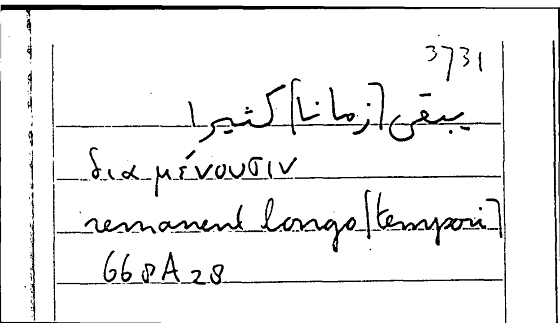 3731
يبقى [زمانا] كثيرا
δια μένουσιν
remanent longo [tempori]
668A28